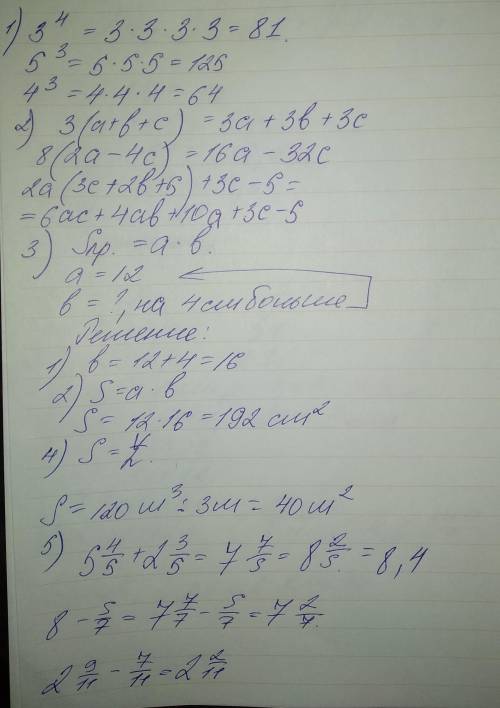 1) 3⁴ = 3·3·3·3 = 81.
5³ = 5·5·5 = 125
4³ = 4·4·4 = 64
2) 3(a+b+c) = 3a+3b+3c
8(2a-4c) = 16a-32c
2a(3c+2b+5)+3c-5=
=6ac+4ab+10a+3c-5
3) Sпр. = a·b.
a = 12
b = ?, на 4 см больше
Решение:
1) b = 12+4 = 16
2) S = a·b
S = 12·16 = 192 см²
4) S =
S = 120 м³ : 3м = 40 м²
5) 5 4/5 + 2 3/5 = 7 7/5 = 8 2/5. = 8,4
8 - 5/7 = 7 7/7 - 5/7 = 7 2/7.
2 9/11 - 7/11 = 2 2/11